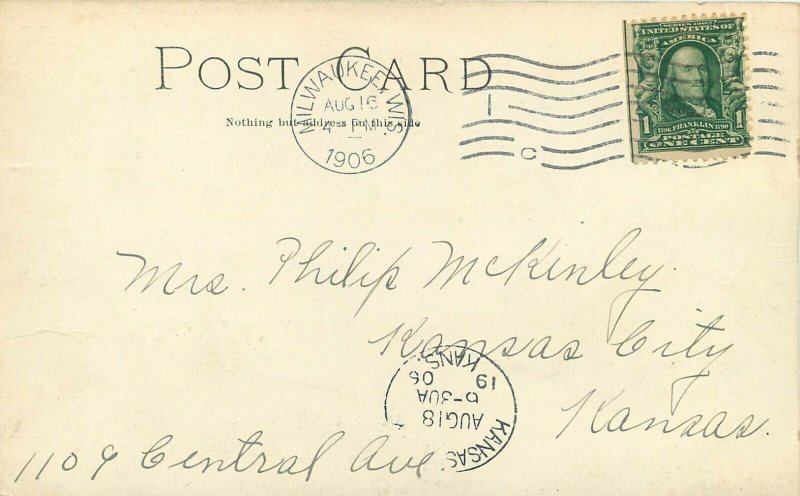 POST CARD
Nothing but address on this side
MILWAUKEE, WIS.
AUG 16
4 - PM
1906
C
SERIES 1902
UNITED STATES OF
AMERICA
1 1706 FRANKLIN 1790 1
POSTAGE
ONE CENT
Mrs. Philip McKinley.
Kansas City
Kansas.
1109 Central Ave.
KANSAS
AUG 18
6-30A
19 06
KANS.